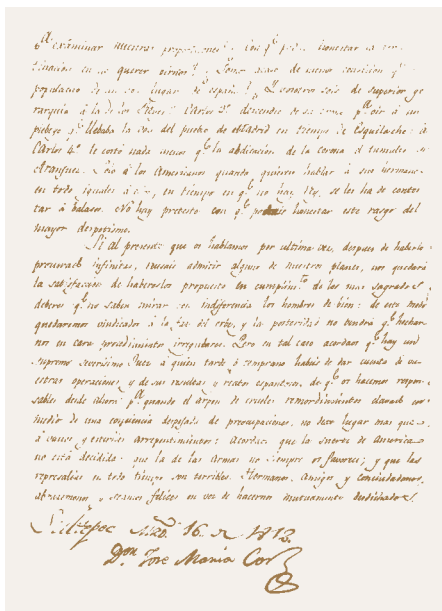 á examinar nuestras proposiciones? Con q.e podra honestar la con-
tinuacion en no querer oirnos? Somos acaso de menor condicion q.e el
populacho de un lugar de españa? Y vosotros sois de superior ge-
rarquia á la de los Reyes? Carlos 3.º descendio de su trono p.a oir á un
plebeyo q.e llebaba la voz del pueblo de Madrid en tiempo de Esquilache: á
Carlos 4.º le costó nada menos q.e la abdicacion de la corona el tumulto de
Aranjuez. Solo á los Americanos quando quieren hablar á sus hermanos
en todo iguales á ellos, en tiempo en q.e no hay Rey, se les ha de contes-
tar á balasos. No hay pretexto con q.e podais honestar este rasgo del
mayor despotismo.
Si al presente que os hablamos por ultima vez, despues de haberlo
procurado infinitas, reusais admitir alguno de nuestros planes, nos quedará
la satisfaccion de haberlos propuesto en cumplim.to de los mas sagrados
deberes q.e no saben mirar con indiferencia los hombres de bien: de este modo
quedaremos vindicados á la faz del orbe, y la posteridad no tendrá q.e hechar-
nos en cara procedimientos irregulares. Pero en tal caso acordaos q.e hay un
supremo severisimo Juez á quien tarde ó temprano habeis de dar cuenta de vu-
estras operaciones y de sus resultas y reatos espantosos, de q.e os hacemos respon-
sables desde ahora p.a quando el arpon de crueles remordimientos clavado en
medio de una conciencia despojada de preocupaciones, no deje lugar mas que
á vanos y esteriles arrepentimientos: Acordaos que la suerte de America
no está decidida: que la de las Armas no siempre os favorece; y que las
represalias en todo tiempo son terribles. Hermanos, Amigos y conciudadanos,
abrazemonos y seamos felices en vez de hacernos mutuamente desdichados.
Sultepec Marzo 16. de 1812.
D.on Jose Maria Cos